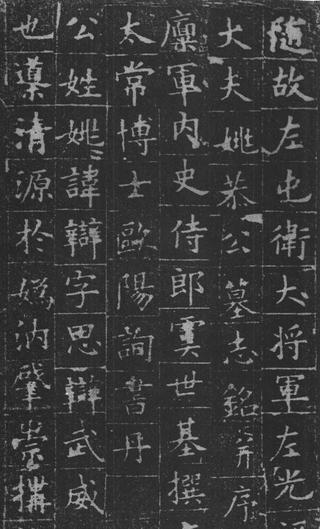 随故左屯衛大将軍左光
大夫姚恭公墓志銘并序
麾軍内史侍郎虞世基撰
太常博士歐陽詢書丹
公姓姚諱辯字思辯武威
也導清源於媯汭肇崇構